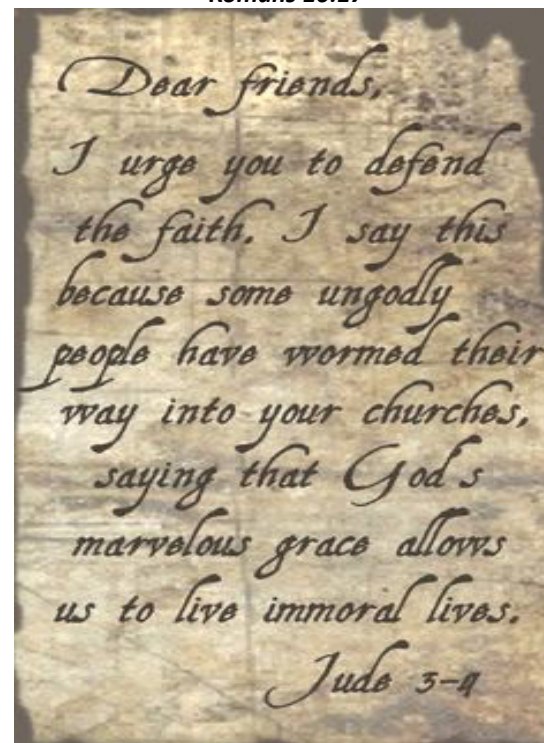 Dear friends,
I urge you to defend
the faith. I say this
because some ungodly
people have wormed their
way into your churches,
saying that God's
marvelous grace allows
us to live immoral lives.
Jude 3-4